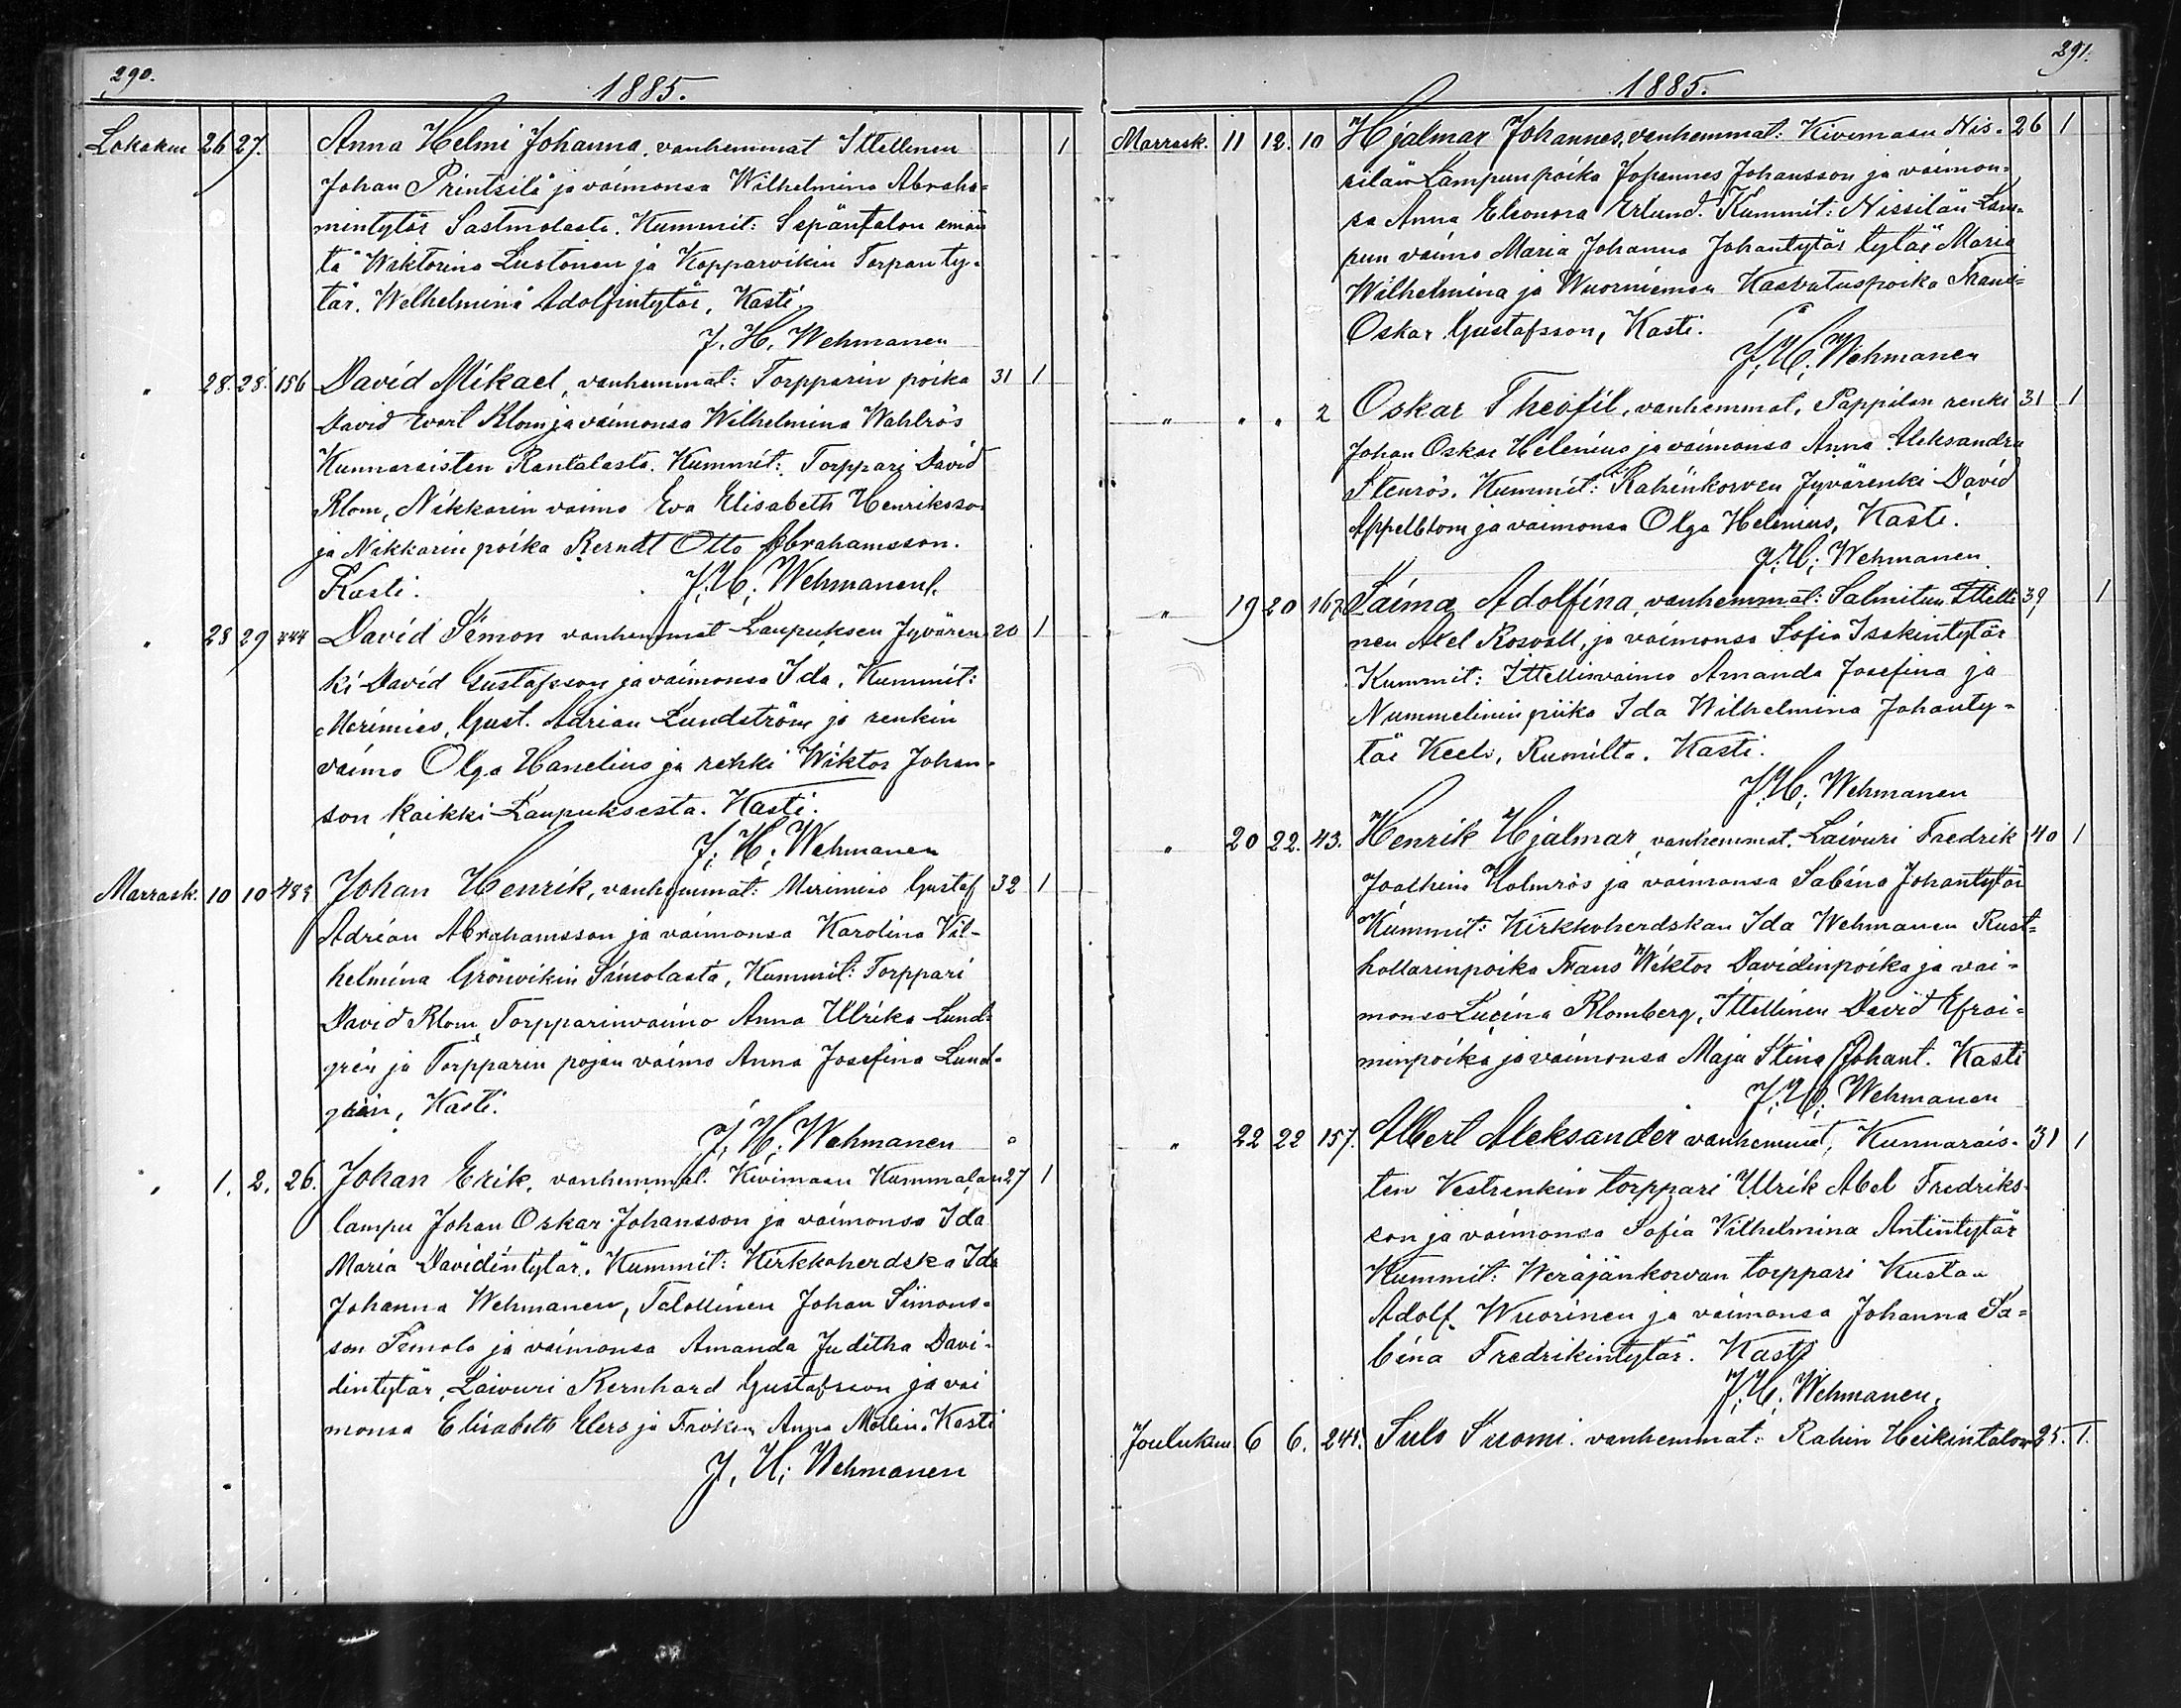 290.
1885.
Lokakuu 26 27. Anna Helmi Johanna, vanhemmat Ittellinen 1
Johan Printsilä ja vaimonsa Wilhelmina Abraha-
mintytär Sastmolasta. Kummit: Sepäntalon emän
tä Wiktorina Lustonen ja Kopparvikin Torpan ty-
tär. Wilhelmina Adolfintytär, Kasti.
J. H. Wehmanen
" 28. 28. 156 David Mikael, vanhemmat: Torpparin poika 31 1
David Evert Blom ja vaimonsa Wilhelmina Wahlrös
Kunnaraisten Rantalasta. Kummit: Torppari David
Blom, Nikkarin vaimo Eva Elisabeth Henriksson
ja Nikkarin poika Berndt Otto Abrahamsson.
Kasti. J. H. Wehmanen
" 28 29 444 David Simon vanhemmat Laupuksen Jyvären- 20 1
ki David Gustafsson ja vaimonsa Ida. Kummit:
Merimies, Gust. Adrian Lundström ja renkin
vaimo Olga Hanelius ja renki Wiktor Johan-
son kaikki Laupuksesta. Kasti.
J. H. Wehmanen
Marrask. 10 10 483 Johan Henrik, vanhemmat: Merimies Gustaf 32 1
Adrian Abrahamsson ja vaimonsa Karolina Vil-
helmina Grönvikin Simolasta, Kummit: Torppari
David Blom, Torpparinvaimo Anna Ulrika Lund-
grén ja Torpparin pojan vaimo Anna Josefina Lund-
grén, Kasti.
J. H. Wehmanen
" 1. 2. 26. Johan Erik, vanhemmat. Kivimaan Kummalan 27 1
lampu Johan Oskar Johansson ja vaimonsa Ida
Maria Davidintytär. Kummit: Kirkkoherdska Ida
Johanna Wehmanen, Talollinen Johan Simons-
son Simola ja vaimonsa Amanda Juditha Davi-
dintytär, Laivuri Bernhard Gustafsson ja vai
monsa Elisabeth Elers ja Fröken Anna Molin. Kasti
J. H. Wehmanen
291.
1885.
Marrask. 11 12. 10 Hjalmar Johannes, vanhemmat: Kivimaan Nis- 26 1
silän Lampunpoika Johannes Johansson ja vaimon-
sa Anna Eleonora Erlund. Kummit: Nissilän Lam-
pun vaimo Maria Johanna Johantytär tytär Maria
Wilhelmina ja Wuorniemen Kasvatuspoika Frans
Oskar Gustafsson, Kasti.
J. H. Wehmanen
" " " 2 Oskar Theofil, vanhemmat, Pappilan renki 31 1
Johan Oskar Helenius ja vaimonsa Anna Aleksandra
Stenrös. Kummit: Rahinkorven Jyvärenki David
Appelblom ja vaimonsa Olga Helenius, Kasti.
J. H. Wehmanen
" 19 20 167 Saima Adolfina, vanhemmat: Salmitun Ittelli 39 1
nen Abel Rosvall, ja vaimonsa Sofia Isakintytär
Kummit: Ittellisvaimo Amanda Josefina ja
Nummelinin piika Ida Wilhelmina Johanty-
tär Keeli, Rumilta. Kasti.
J. H. Wehmanen
" 20 22. 43. Henrik Hjalmar, vanhemmat. Laivuri Fredrik 40 1
Joakim Holmrös ja vaimonsa Sabina Johantytär
Kummit: Kirkkoherdskan Ida Wehmanen Rust-
hollarinpoika Frans Wiktor Davidinpoika ja vai-
monsa Lucina Blomberg, Ittellinen David Efrai-
minpoika ja vaimonsa Maja Stina Johant. Kasti
J. H. Wehmanen
" 22 22 157. Albert Aleksander vanhemmat, Kunnarais- 31 1
ten Vestrenkin torppari Ulrik Abel Fredriks-
son ja vaimonsa Sofia Vilhelmina Antintytär
Kummit: Weräjänkorvan torppari Kustaa
Adolf Wuorinen ja vaimonsa Johanna Sa-
bina Fredrikintytär. Kasti
J. H. Wehmanen.
Joulukuu 6 6. 241. Sulo Suomi. vanhemmat: Rahin Heikintalon 25. 1.